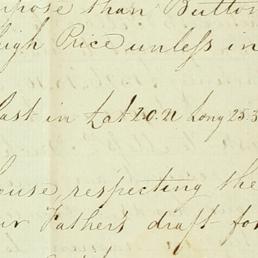 pose than Button
high Price unless in
last in Lat 20.21 Long 25.3
ouse respecting the
ur Father's draft for